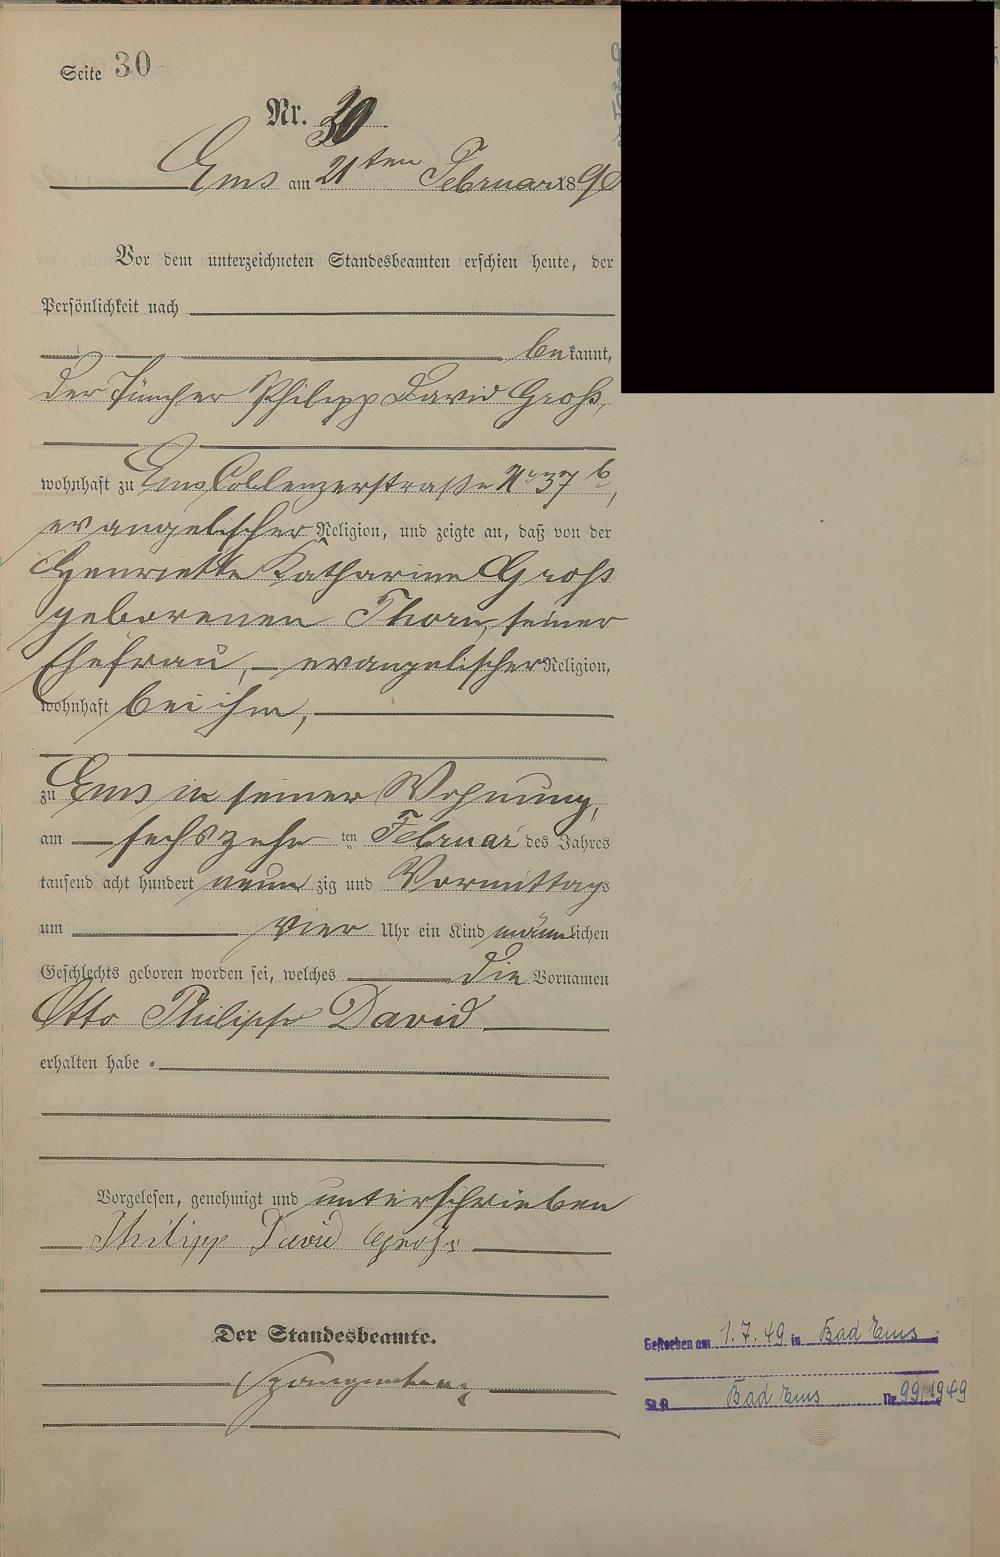 Seite 30
Nr. 30
Ems am 21ten Februar 1890
Vor dem unterzeichneten Standesbeamten erschien heute, der
Persönlichkeit nach
bekannt,
der Tüncher Philipp David Groß,
wohnhaft zu Ems Coblenzerstraße No 37 b,
evangelischer Religion, und zeigte an, daß von der
Henriette Katharine Groß
geborenen Thorn, seiner
Ehefrau, — evangelischer Religion,
wohnhaft bei ihm,
zu Ems in seiner Wohnung,
am sechszehn ten Februar des Jahres
tausend acht hundert neun zig und Vormittags
um vier Uhr ein Kind männlichen
Geschlechts geboren worden sei, welches die Vornamen
Otto Philipp David
erhalten habe.
Vorgelesen, genehmigt und unterschrieben
Philipp David Groß
Der Standesbeamte.
Gestorben am 1.7.49 in Bad Ems
St.A. Bad Ems Nr. 99/1949